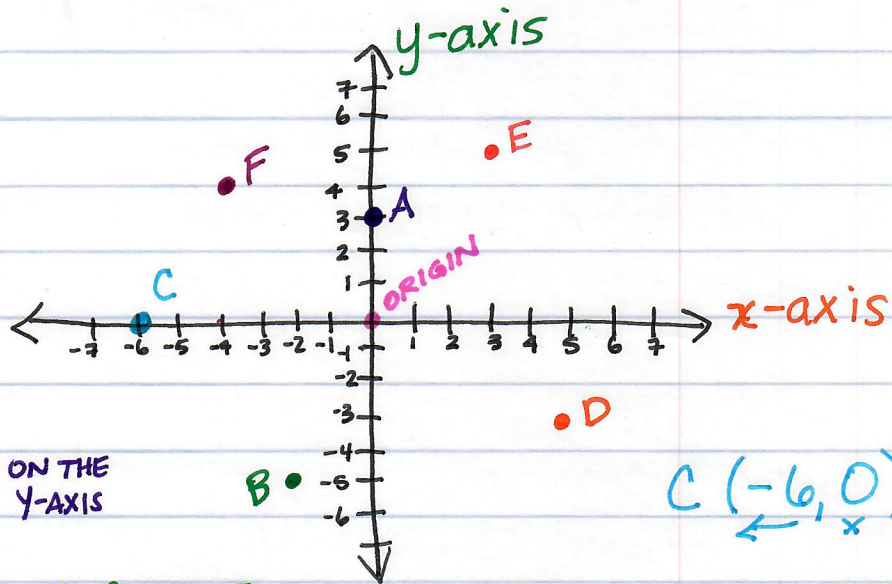 y-axis
7
6
5
4
3
2
1
E
F
A
ORIGIN
C
x-axis
-7 -6 -5 -4 -3 -2 -1 1 2 3 4 5 6 7
-1
-2
-3
-4
-5
-6
D
B
ON THE
Y-AXIS
C (-6, 0)
x